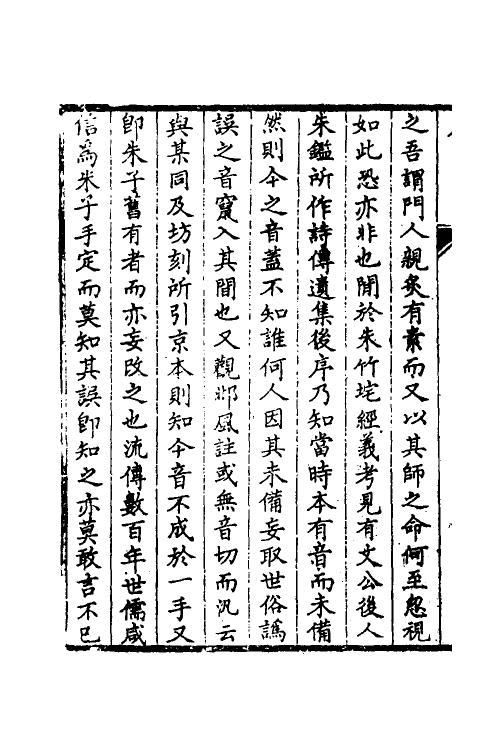 之吾謂門人親炙有素而又以其師之命何至忽視
如此恐亦非也閒於朱竹垞經義考見有文公後人
朱鑑所作詩傳遺集後序乃知當時本有音而未備
然則今之音蓋不知誰何人因其未備妄取世俗譌
誤之音竄入其間也又觀邶風註或無音切而汎云
與某同及坊刻所引京本則知今音不成於一手又
卽朱子舊有者而亦妄改之也流傳數百年世儒咸
信爲朱子手定而莫知其誤卽知之亦莫敢言不巳